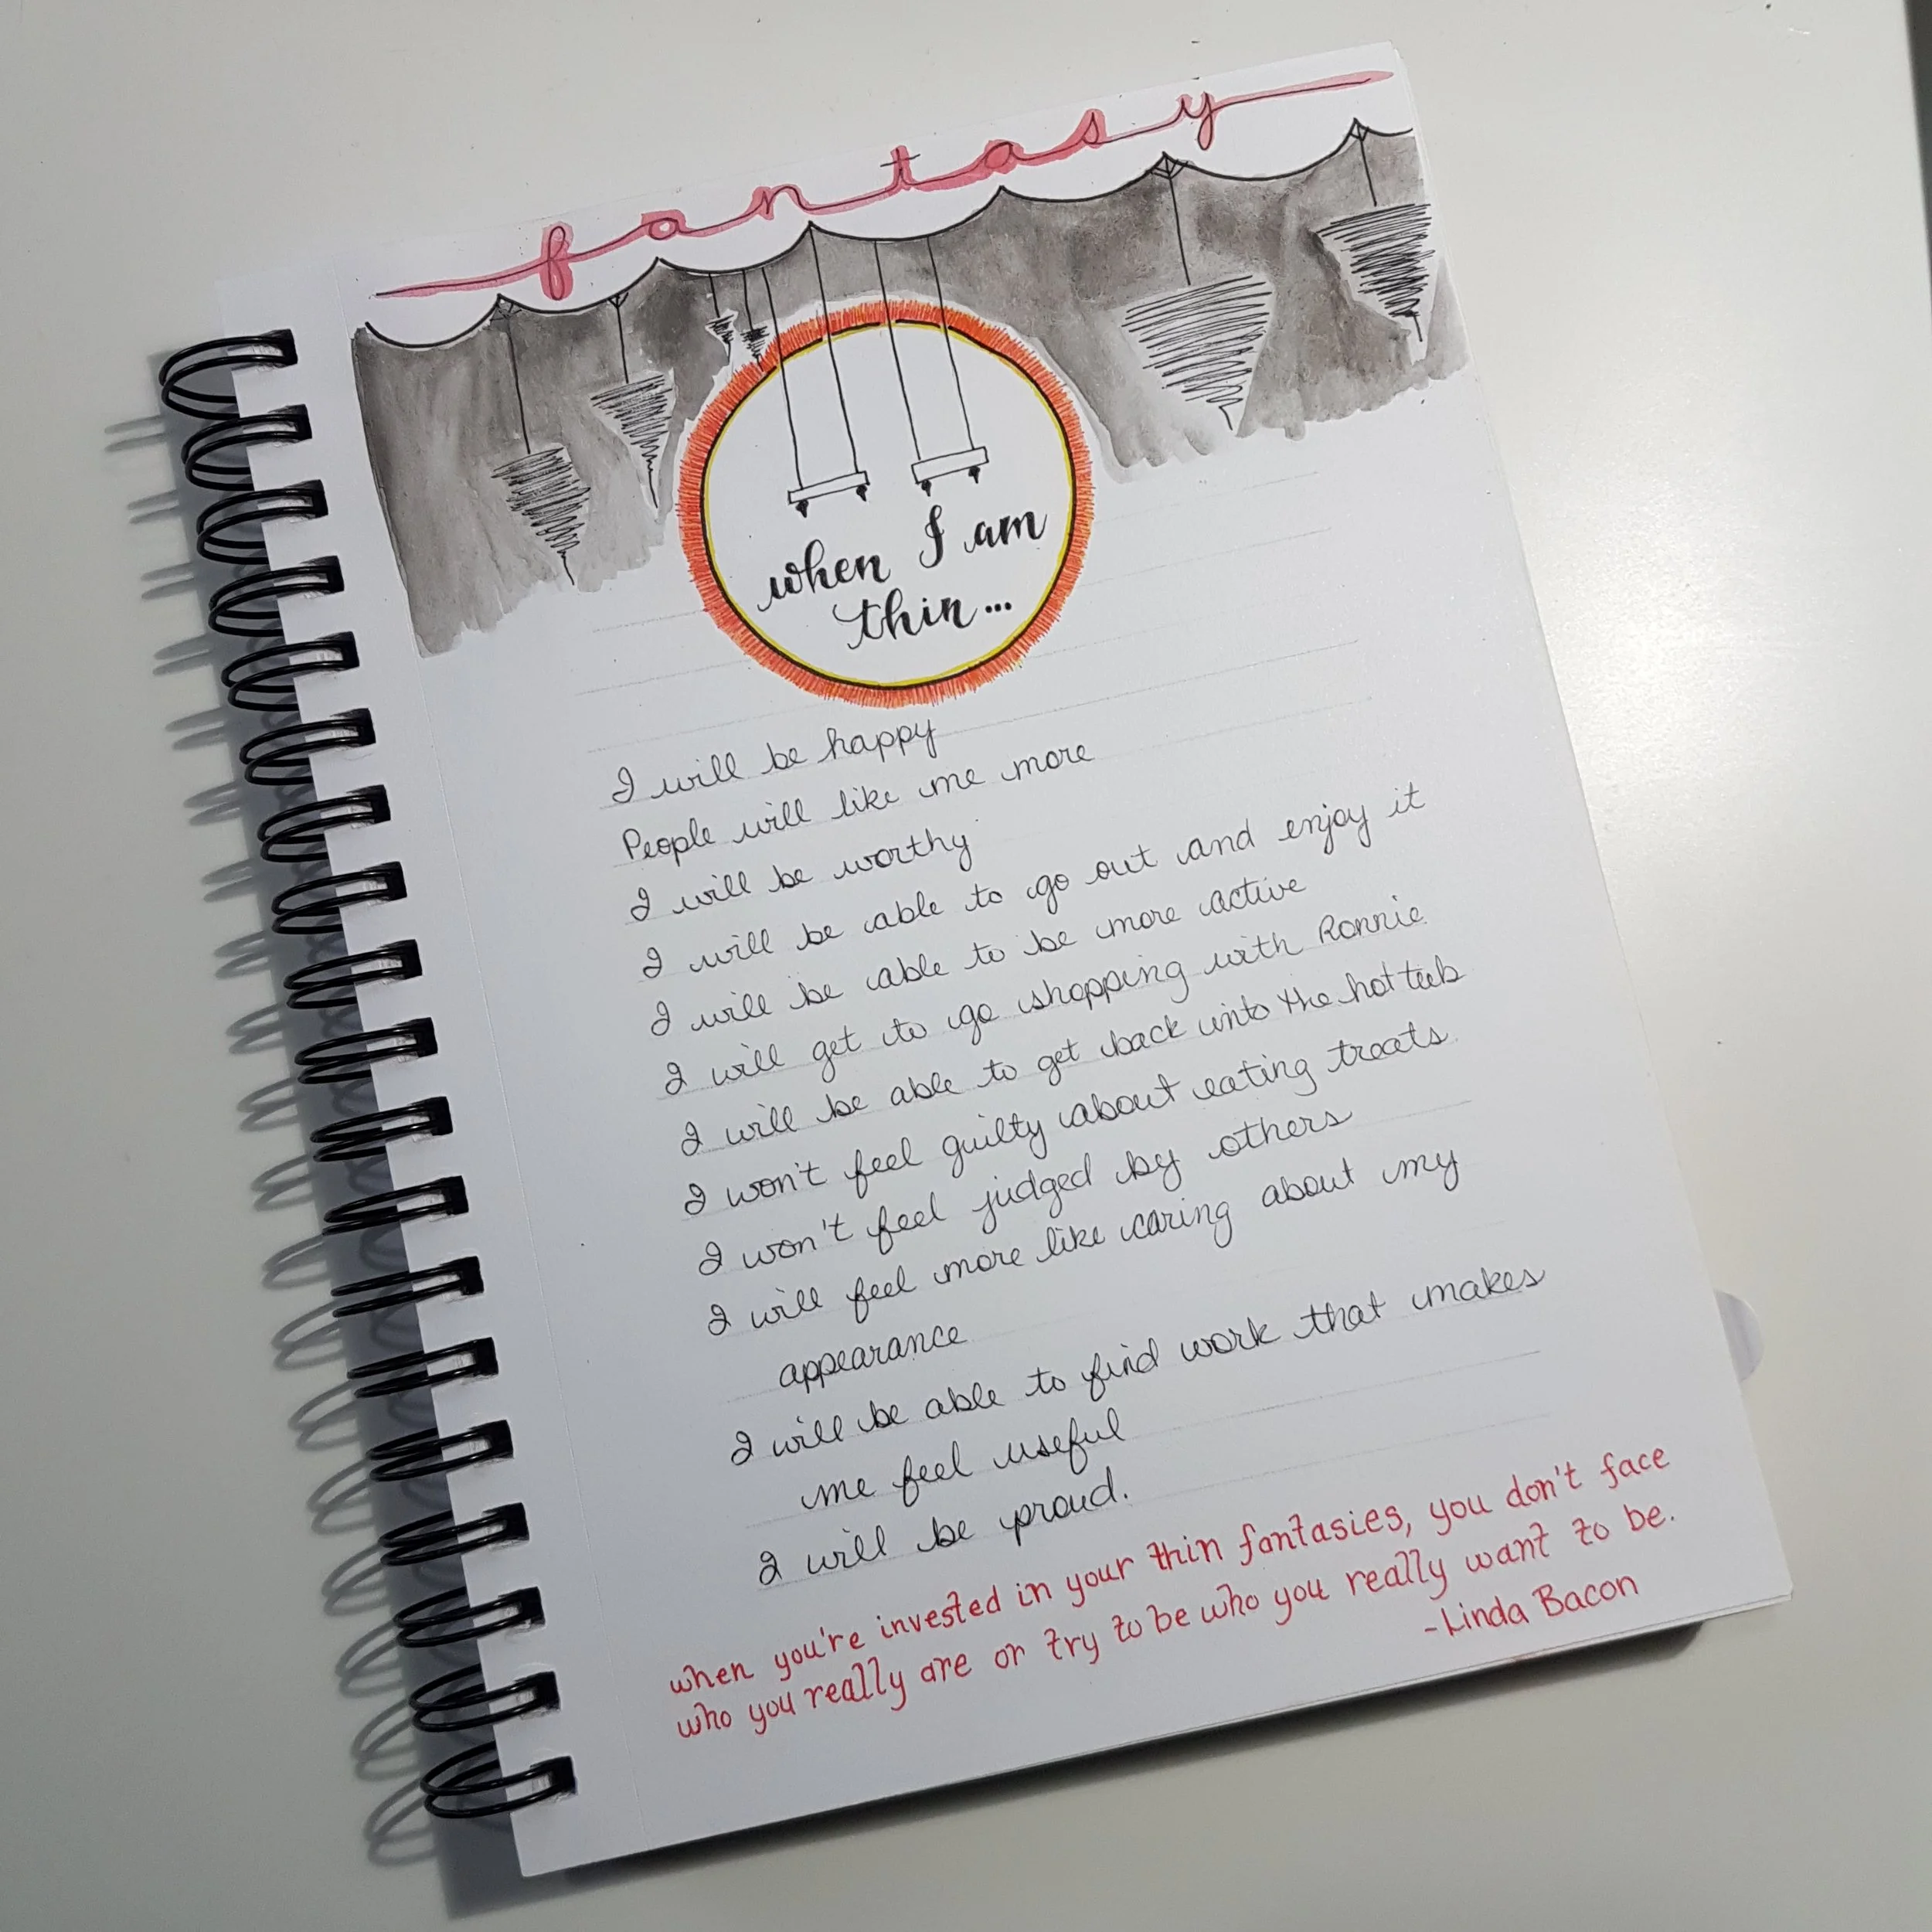 fantasy
when I am
thin...
I will be happy
People will like me more
I will be worthy
I will be able to go out and enjoy it
I will be able to be more active
I will get to go shopping with Ronnie
I will be able to get back into the hot tub
I won't feel guilty about eating treats
I won't feel judged by others
I will feel more like caring about my
appearance
I will be able to find work that makes
me feel useful
I will be proud.
when you're invested in your thin fantasies, you don't face
who you really are or try to be who you really want to be.
-Linda Bacon